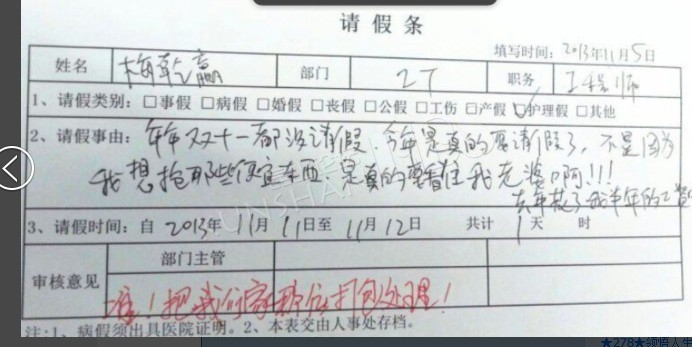 请假条
填写时间：2013年11月5日
姓名 梅乾赢 部门 IT 职务 工程师
1、请假类别：□事假 □病假 □婚假 □丧假 □公假 □工伤 □产假 ☑护理假 □其他
2、请假事由：年年双十一都没请假 今年是真的要请假了，不是因为
我想抢那些便宜东西，是真的要看住我老婆啊!!!
去年花了我半年的工资
3、请假时间：自 2013年 11月 11日至 11月 12日 共计 1 天 时
部门主管
审核意见
准！把我们家那位打包处理！
注:1、病假须出具医院证明。2、本表交由人事处存档。
★278★领悟人生